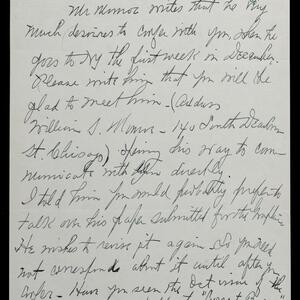 Mr Munroe writes that he very
much desires to confer with you when he
goes to NY the first week in December.
Please write him that you will be
glad to meet him - (address
William S. Monroe - 140 South Dearborn
St. Chicago) his way to com-
municate with you directly.
I told him you would probably prefer to
talk over his paper submitted for the
He wishes to revise it again. So you need
not correspond about it until after you
confer - Have you seen the Oct of the